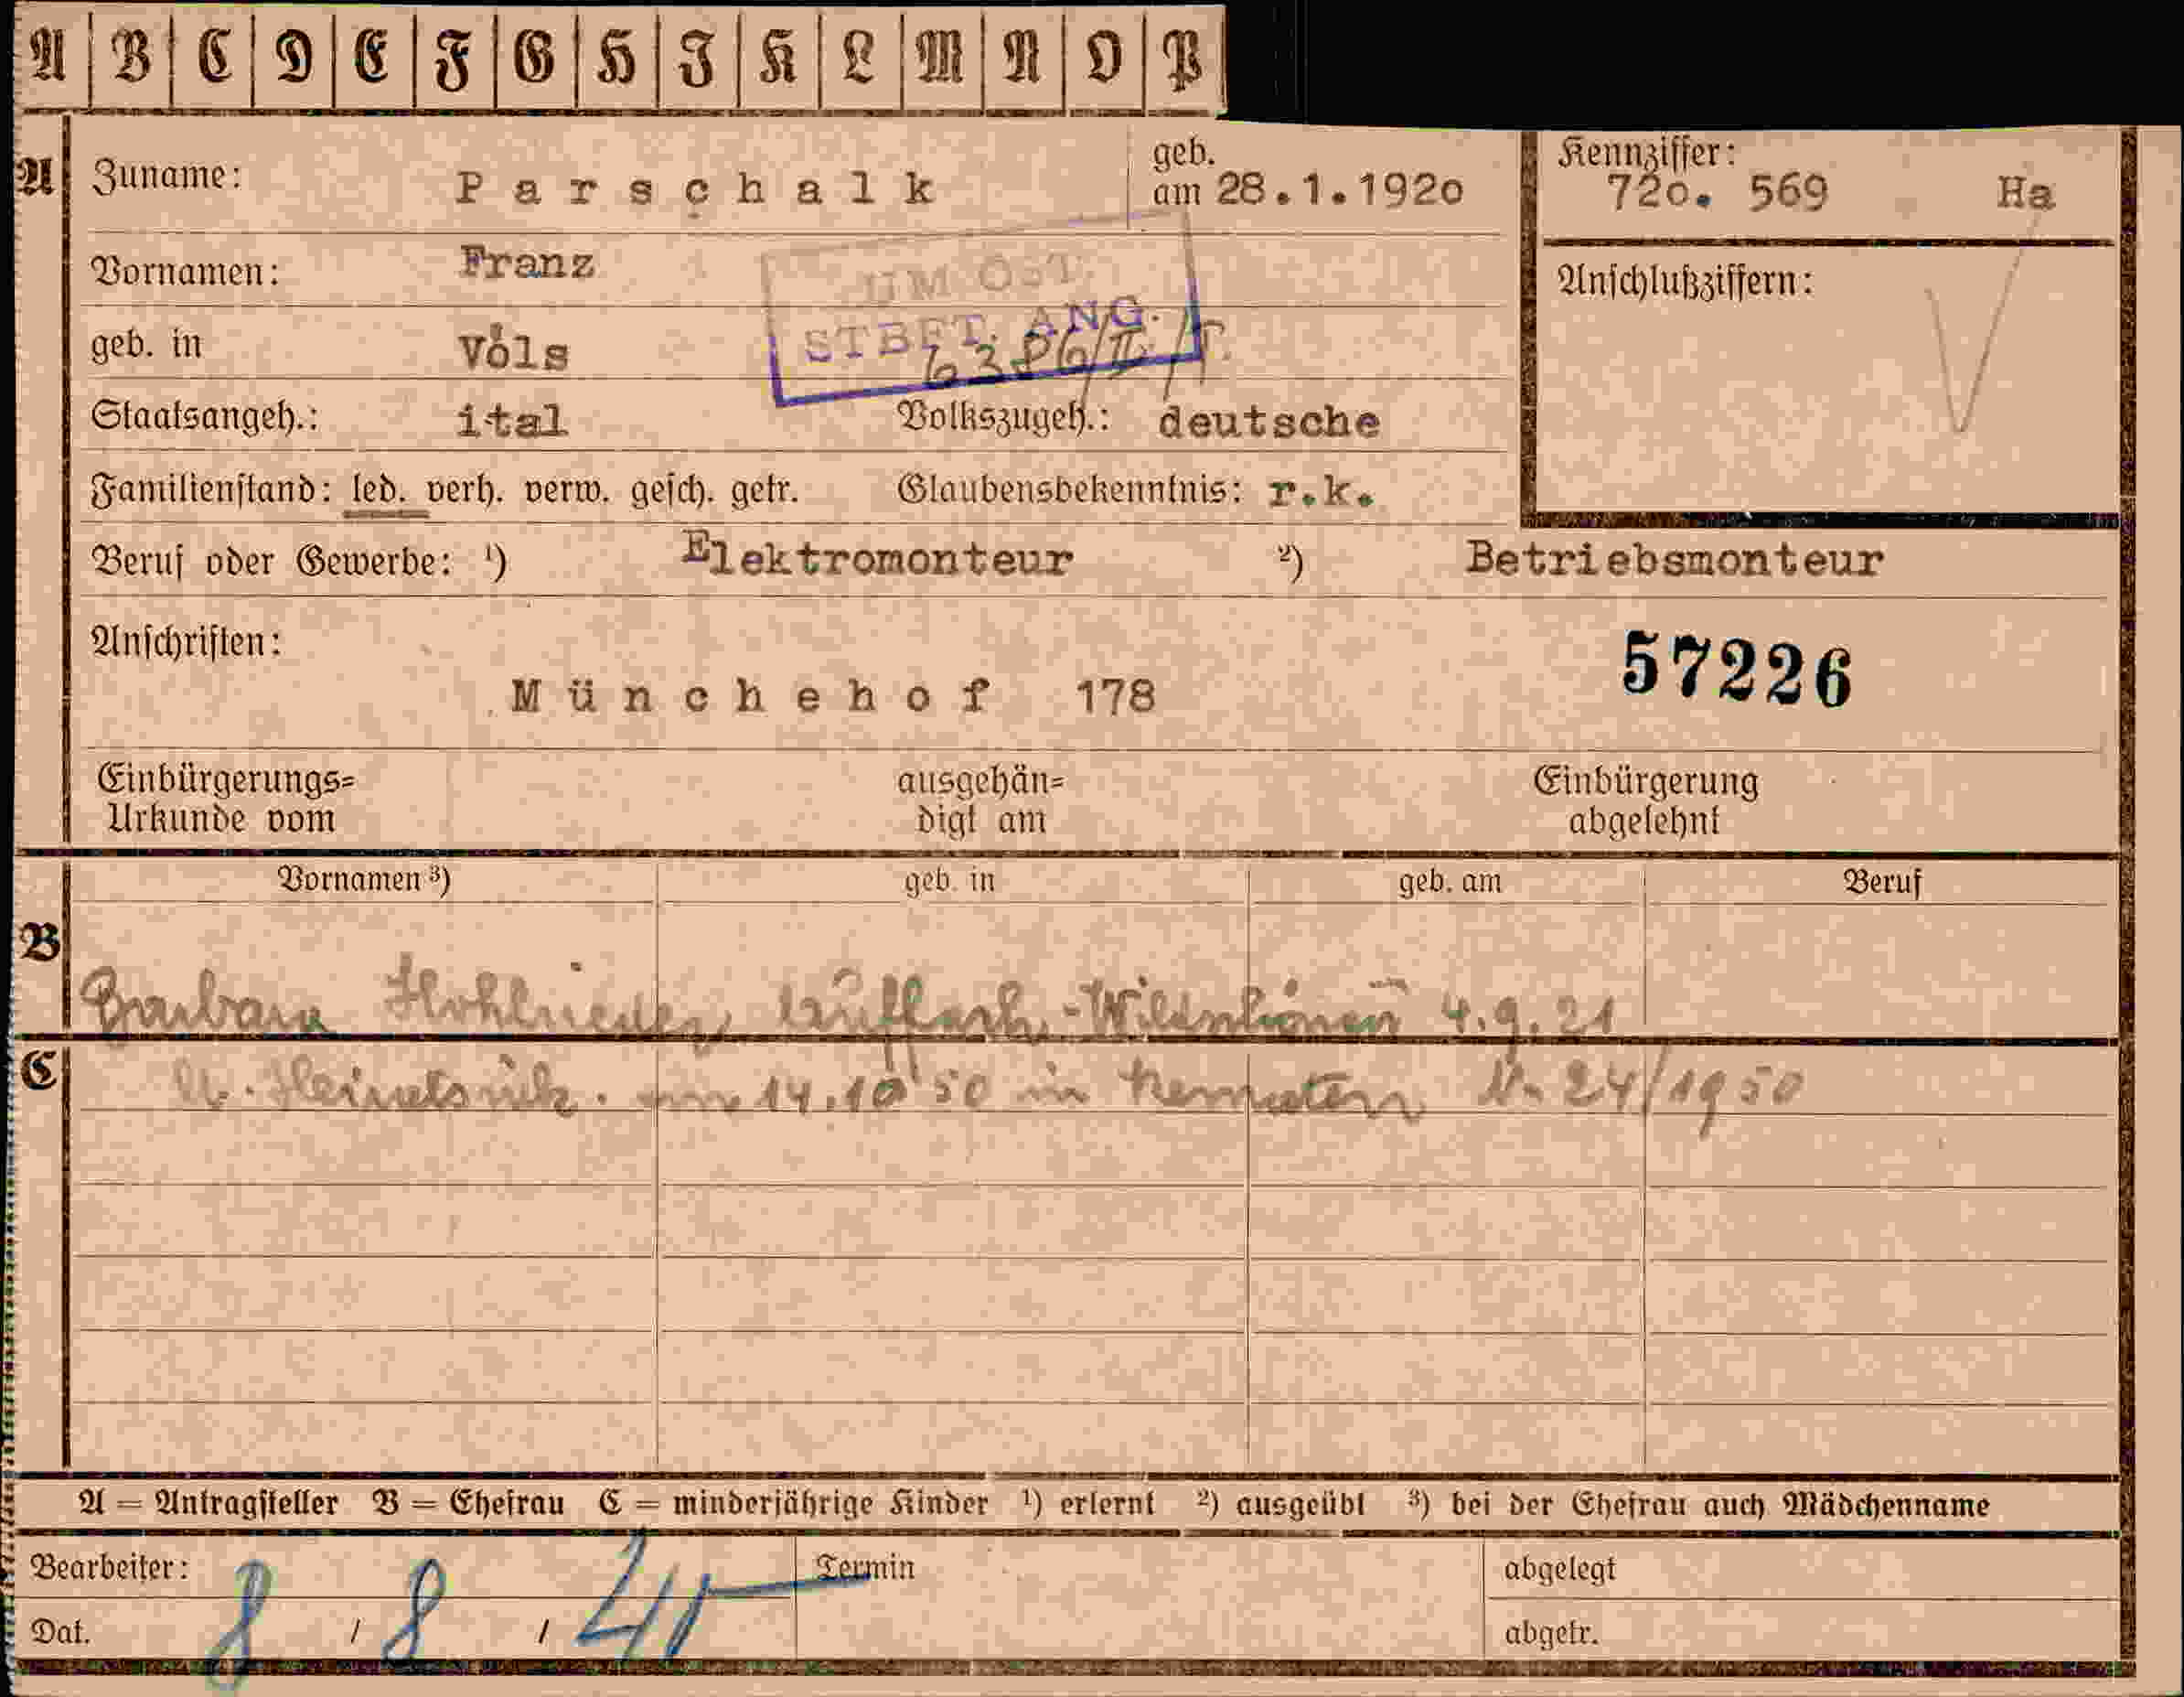 A B C D E F G H I K L M N O P
A Zuname: Parschalk geb. am 28.1.1920 Kennziffer: 720. 569 Ha
Vornamen: Franz
UM OST.
STBFT. ANG.
geb. in Völs
Anschlußziffern:
Staatsangeh.: ital Volkszugeh.: deutsche
Familienstand: led. verh. verw. gesch. getr. Glaubensbekenntnis: r.k.
Beruf oder Gewerbe: ¹) Elektromonteur ²) Betriebsmonteur
Anschriften:
57226
Münchehof 178
Einbürgerungs= ausgehän= Einbürgerung
Urkunde vom digt am abgelehnt
Vornamen ³) geb. in geb. am Beruf
B
Barbara Hohlrieder 4.9.21
C
am 14.10 50 in Kematen Nr 24/1950
A = Antragsteller B = Ehefrau C = minderjährige Kinder ¹) erlernt ²) ausgeübt ³) bei der Ehefrau auch Mädchenname
Bearbeiter: Termin abgelegt
Dat. 8 / 8 / 41 abgetr.